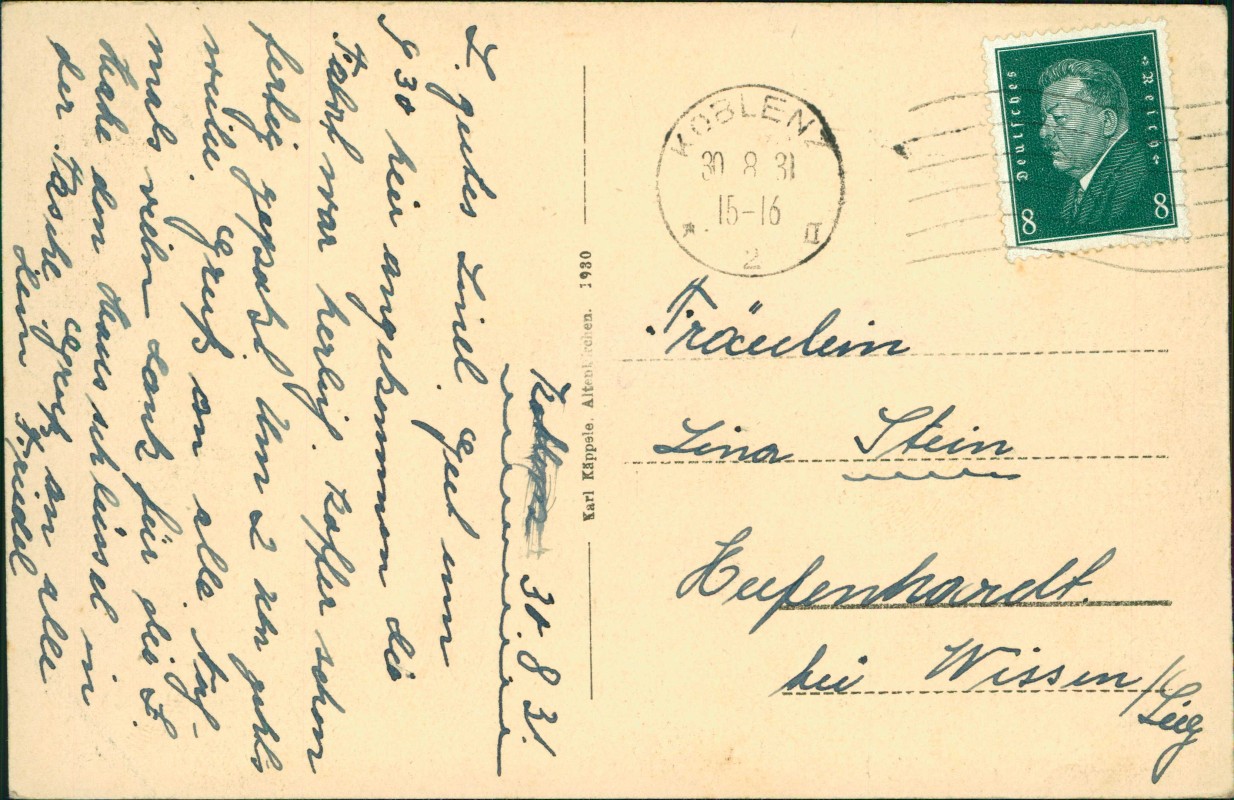 30.8.31.
L. gutes Linel. Gut um
9 30 hier angekommen die
Fahrt war herlig. Koffer schon
fertig gepakt Um 2 Uhr gehts
weiter. Gruß an alle Noch-
mals vielen dank für die F.
Habe den Hausschlüssel in
der Tasche Gruß an alle
Dein Friedel
Karl Käppele, Altenkirchen. 1930
KOBLENZ
30 8 31
15-16
* II
2
Deutsches Reich
8 8
Fräulein
Lina Stein
Hufenhardt.
bei Wissen/Sieg